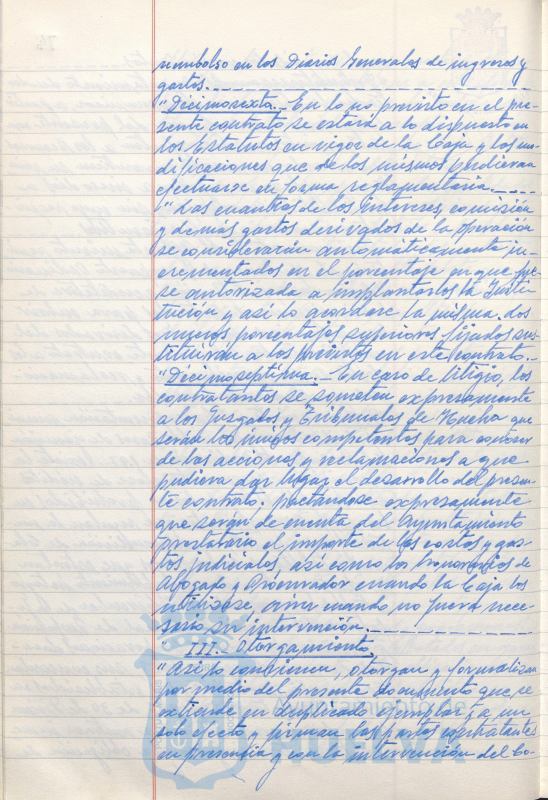 rembolso en los Diarios Generales de ingresos y
gastos.
"Décimosexta.- En lo no previsto en el pre-
sente contrato se estará a lo dispuesto en
los Estatutos en vigor de la Caja y las mo-
dificaciones que de los mismos pudieran
efectuarse en forma reglamentaria.
"Las cuantías de los intereses, comisión
y demás gastos derivados de la operación
se considerarán automáticamente in-
crementados en el porcentaje en que fue-
se autorizada a implantarlos la Insti-
tución y así lo acordase la misma. Los
nuevos porcentajes superiores fijados sus-
tituirán a los previstos en este contrato.-
"Décimoseptima.- En caso de litigio, los
contratantes se someten expresamente
a los Juzgados y Tribunales de Huelva que
serán los únicos competentes para conocer
de las acciones y reclamaciones a que
pudiera dar lugar el desarrollo del presen-
te contrato, pactándose expresamente
que serán de cuenta del Ayuntamiento
prestatario el importe de las costas y gas-
tos judiciales, así como los honorarios de
Abogado y Procurador cuando la Caja los
utilizase, aun cuando no fuera nece-
saria su intervención.
"III.- Otorgamiento.
"Así lo convienen, otorgan y formalizan
por medio del presente documento que se
extiende en duplicado ejemplar, a un
solo efecto y firman las partes contratantes
en presencia y con la intervención del Co-
Ayuntamiento de
HUELVA